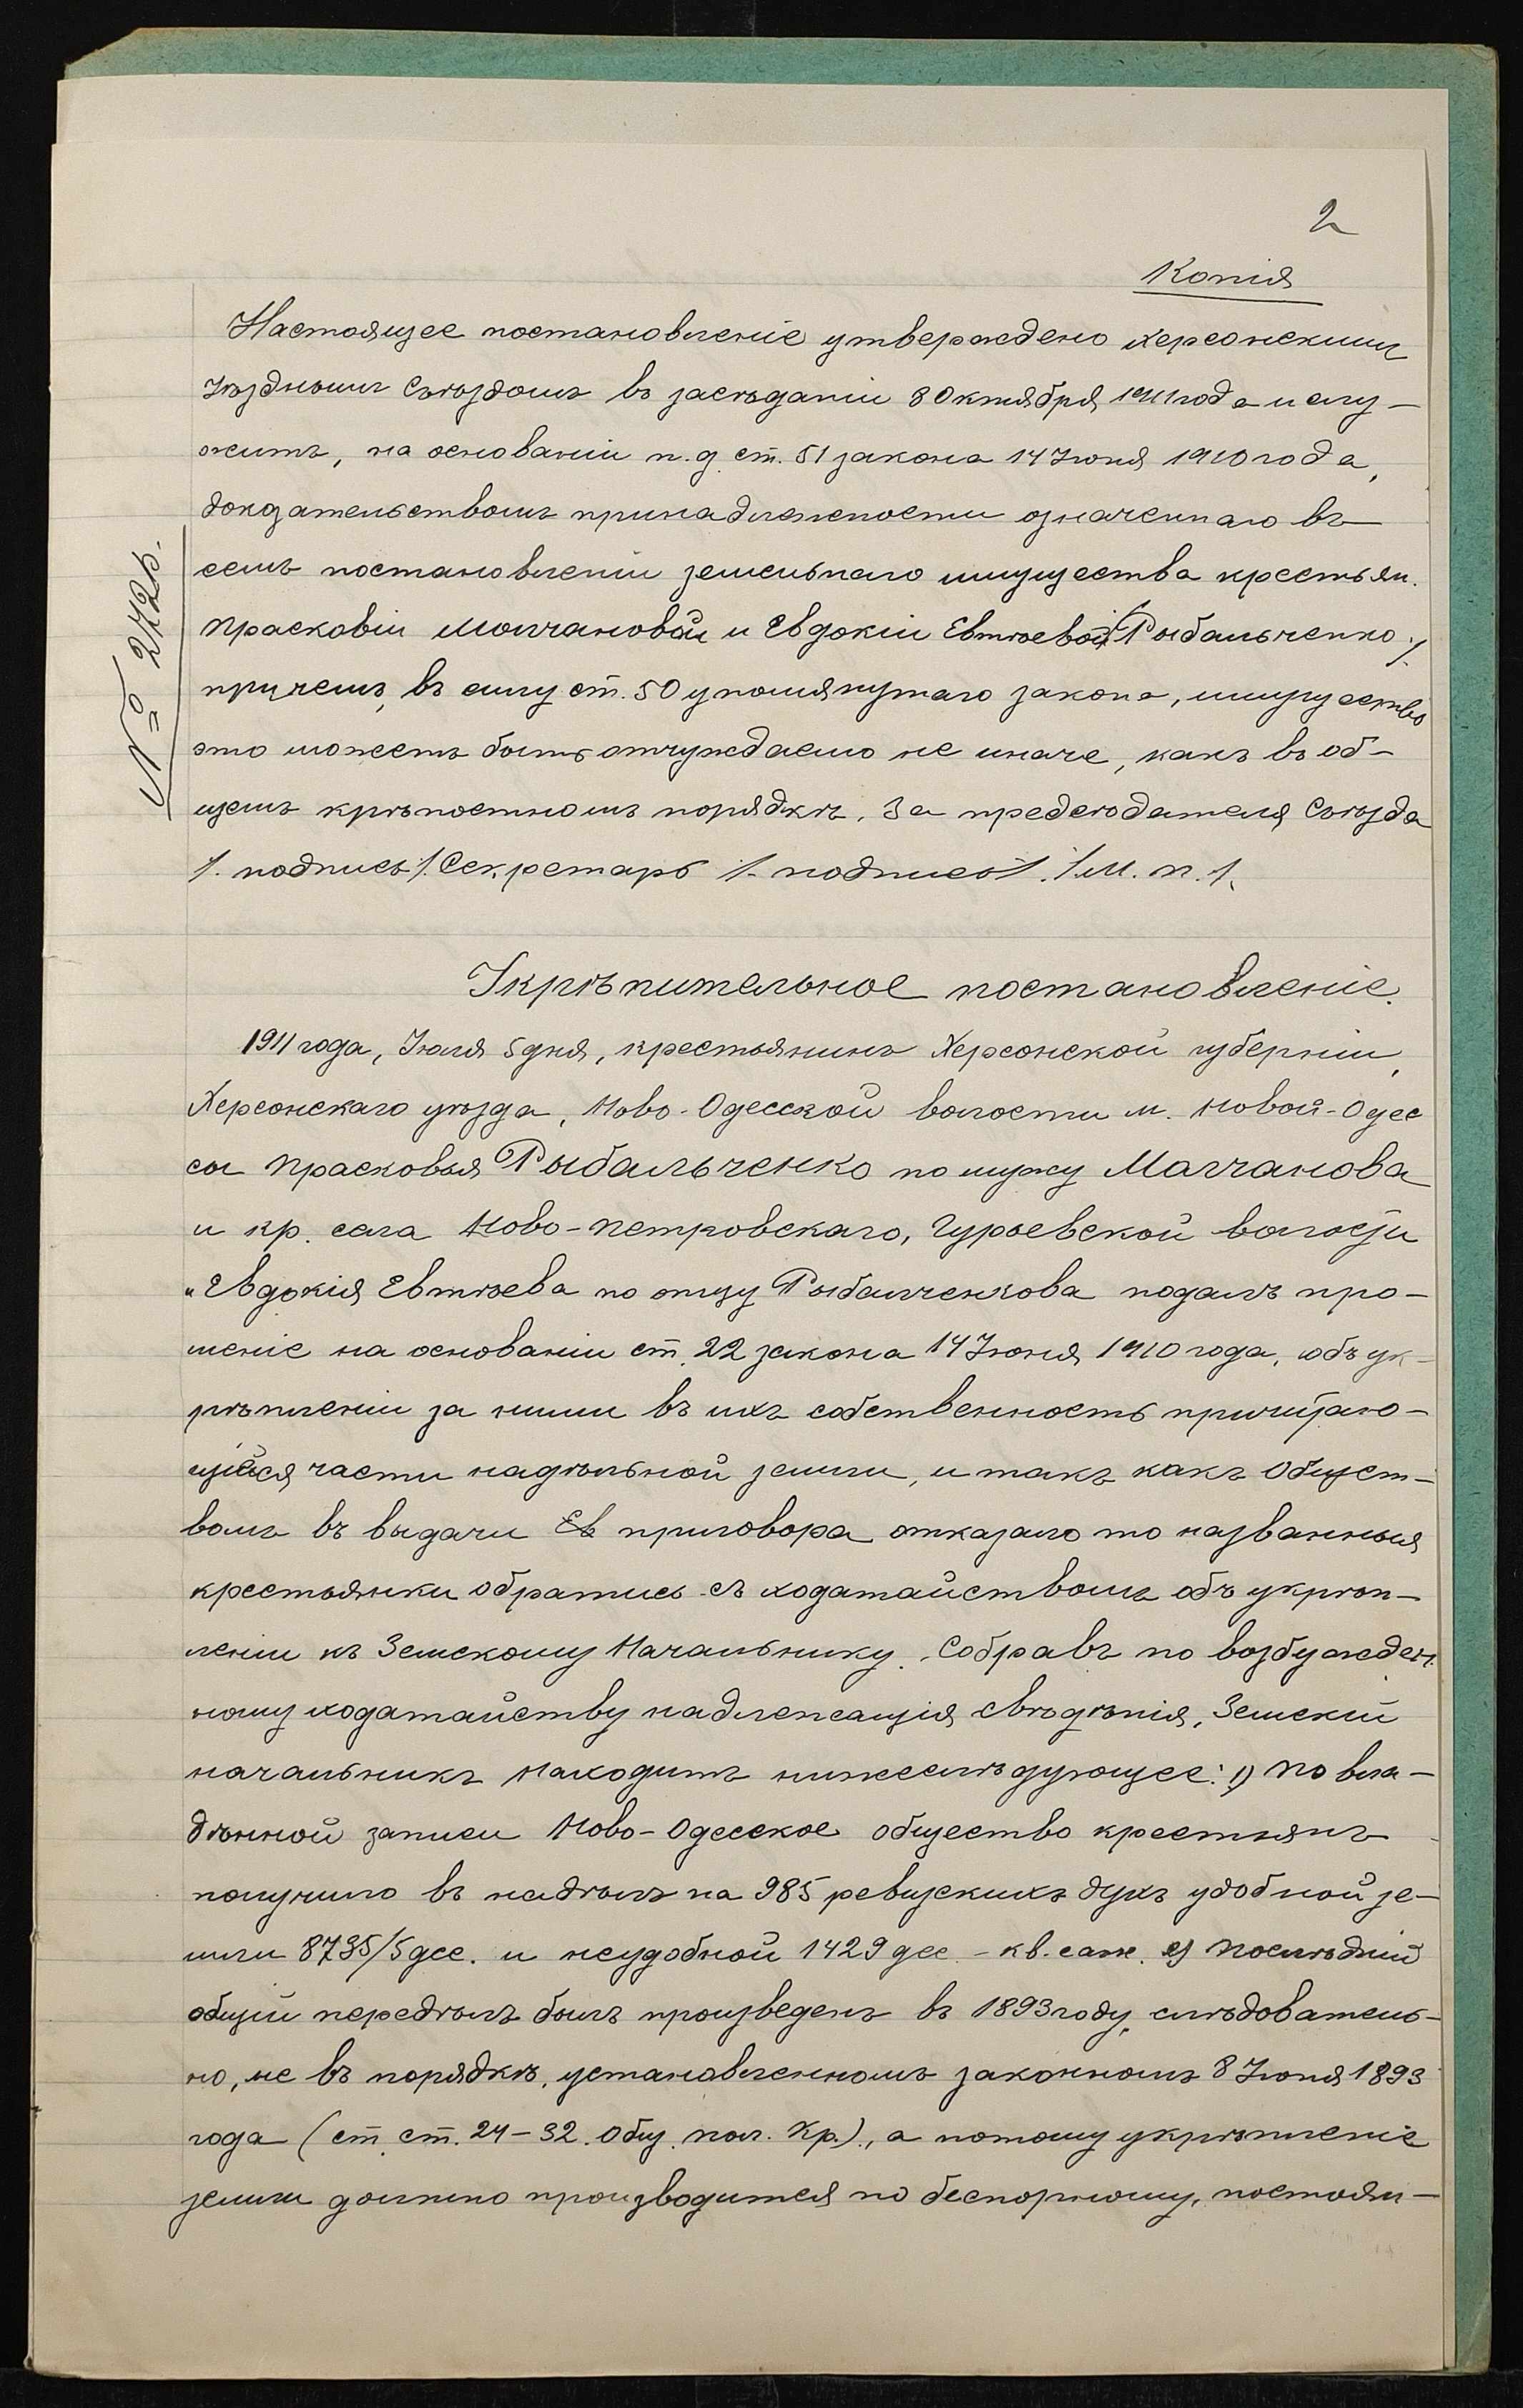 2
Копія
Настоящее постановленіе утверждено Херсонскимъ
Уѣзднымъ Съѣздомъ въ засѣданіи 8 Октября 1911 года и слу-
житъ, на основаніи п. д ст. 51 закона 14 Іюня 1910 года,
докдательствомъ принадлежности означеннаго въ
семъ постановленіи земельнаго имущества крестьян.
Прасковіи Молчановой и Евдокіи Евтѣевой /Рыбальченко/
причемъ, въ силу ст. 50 упомянутаго закона, имущество
это можетъ быть отчуждаемо не иначе, какъ въ об-
щемъ крѣпостномъ порядкѣ. За предсѣдателя Съѣзда
/. подпись/. Секретарь /. подпись/. /М. п./.
№ 272 б.
Укрѣпительное постановленіе.
1911 года, Іюля 5 дня, крестьянинъ Херсонской губерніи,
Херсонскаго уѣзда, Ново-Одесской волости м. Новой-Одес
сы Прасковья Рыбальченко по мужу Малчанова
и кр. села Ново-Петровскаго, Гурьевской волости
"Евдокія Евтѣева по отцу Рыбалченкова подалъ про-
шеніе на основаніи ст. 22 закона 14 Іюня 1910 года, объ ук-
рѣпленіи за ними въ ихъ собственность причитаю-
щійся части надѣльной земли, и такъ какъ Общест-
вомъ въ выдачи приговора отказало то названныя
крестьянки обратись съ ходатайствомъ объ укрѣп-
леніи къ Земскому Начальнику. Собравъ по возбужден-
ному ходатайству надлежащія свѣдѣнія, Земскій
начальникъ находитъ нижеслѣдующее: 1) По вла-
дѣнной записи Ново-Одесское общество крестьянъ
получило въ надѣлъ на 985 ревизскихъ душъ удобной зе-
мли 8735/5 дес. и неудобной 1429 дес. - кв. саж. 2) Послѣдній
общій передѣлъ былъ произведенъ въ 1893 году, слѣдователь-
но, не въ порядкѣ, установленномъ законномъ 8 Іюня 1893
года (ст. ст. 24-32. Общ. пол. Кр.)., а потому укрѣпленіе
земли должно производится по безспорному, постоян-